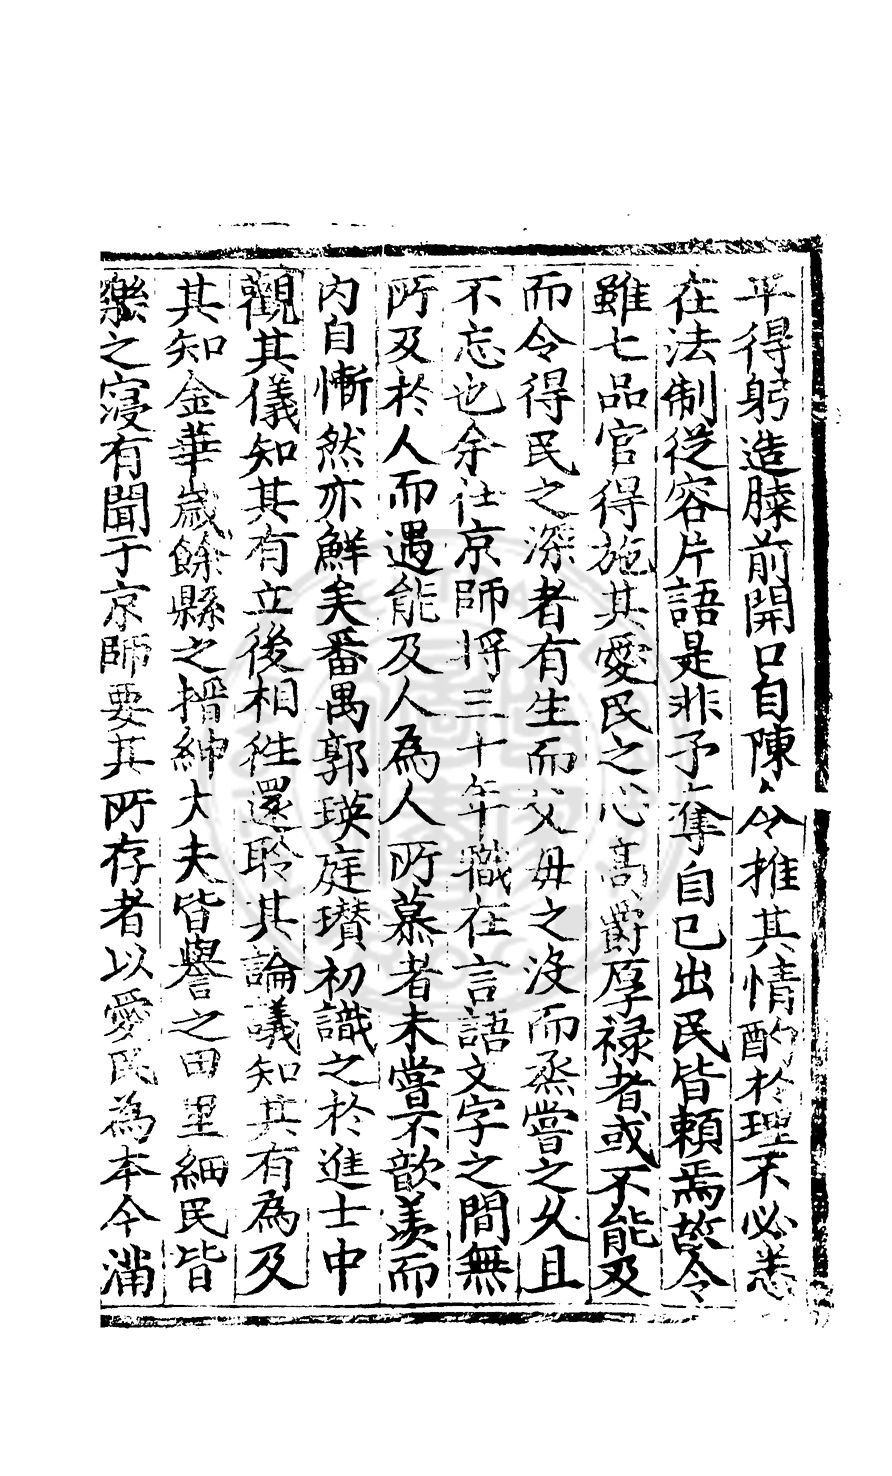 平得躬造膝前開口自陳令推其情酌於理不必悉
在法制從容片語是非予奪自己出民皆頼焉故令
雖七品官得施其愛民之心高爵厚禄者或不能及
而令得民之深者有生而父母之沒而烝嘗之久且
不忘也余仕京師將三十年職在言語文字之間無
所及於人而遇能及人為人所慕者未嘗不歆羡而
內自慚然亦鮮矣番禺郭瑛庭瓚初識之於進士中
觀其儀知其有立後相徃還聆其論議知其有為及
其知金華嵗餘縣之搢紳大夫皆譽之田里細民皆
樂之寖有聞于京師要其所存者以愛民為本今滿